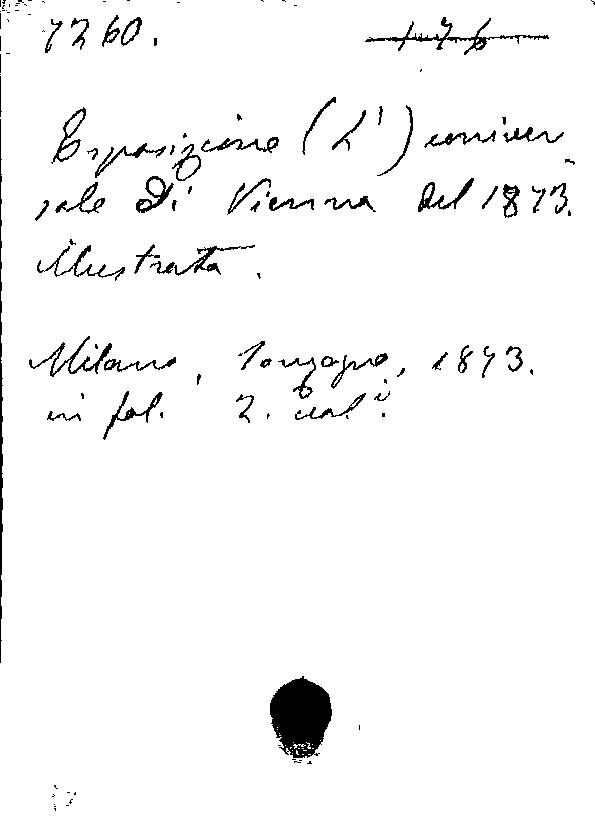 7260. 176
Esposizione (L') univer-
sale Di Vienna del 1873.
illustrata.
Milano, Sonzogno, 1873.
in fol. 2. voli.